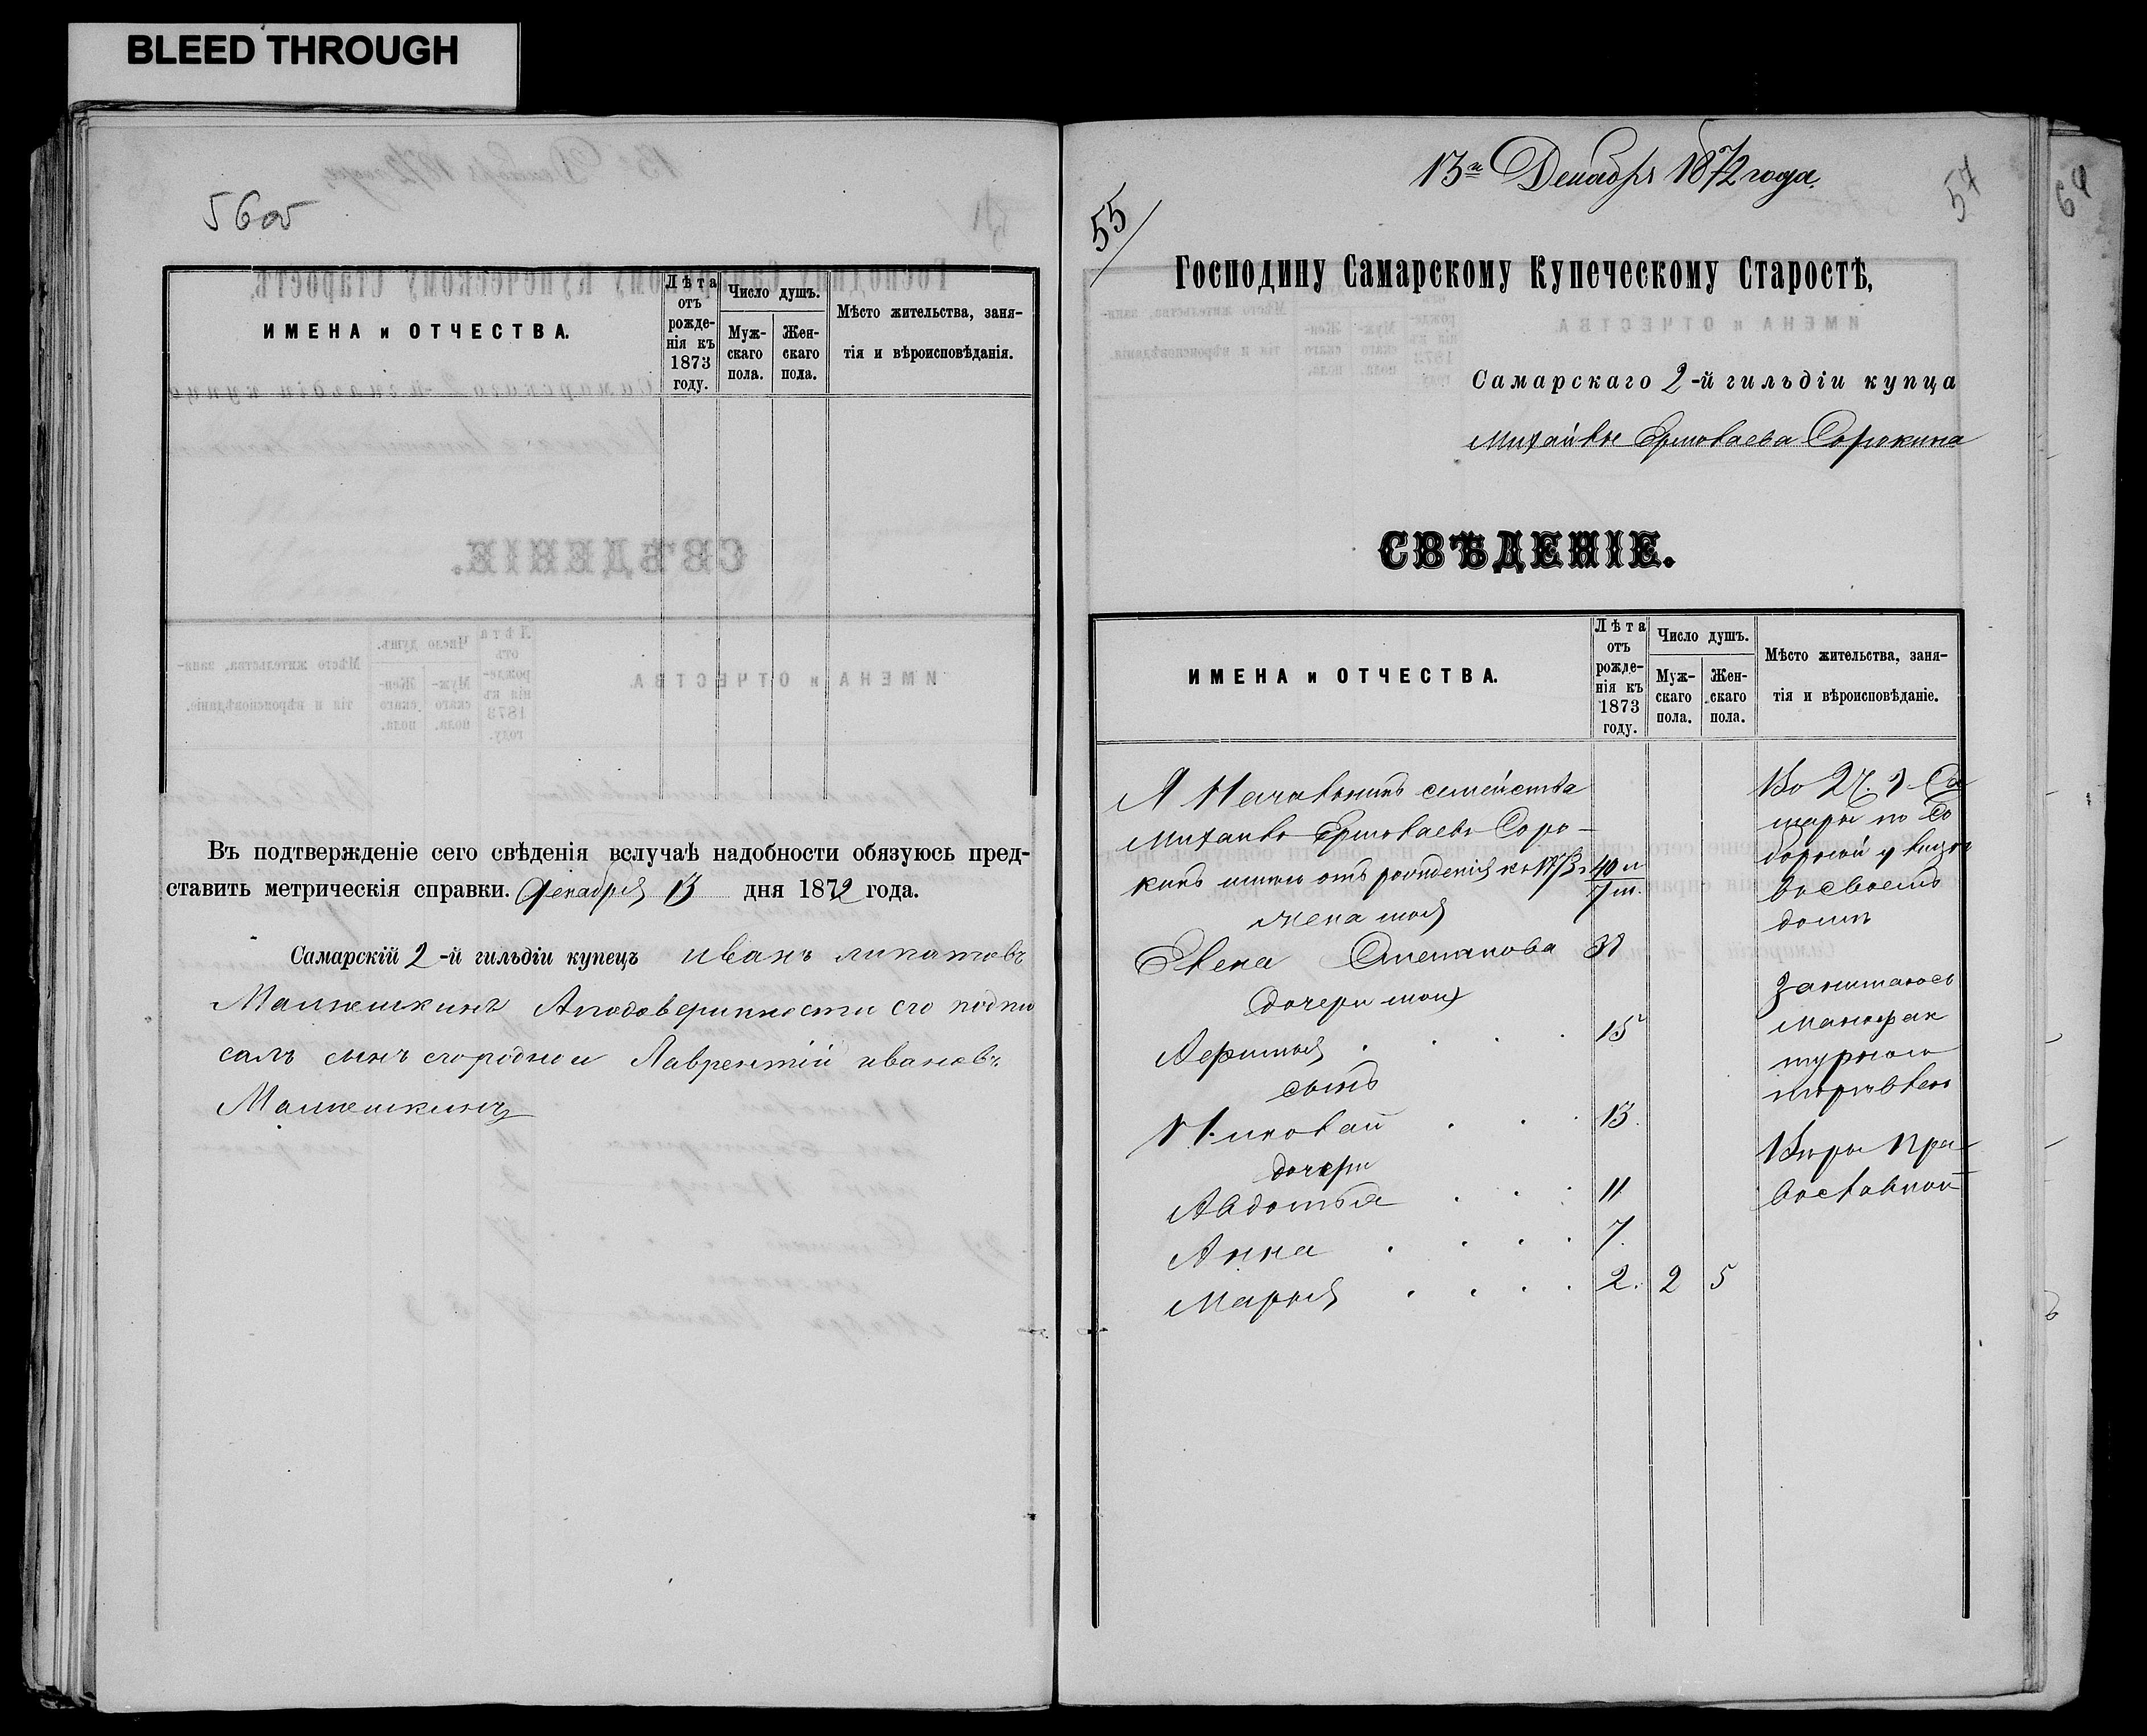 BLEED THROUGH
56об
ИМЕНА и ОТЧЕСТВА.
Лѣта отъ рожденія къ 1873 году.
Число душъ.
Мужскаго пола.
Женскаго пола.
Мѣсто жительства, заня-
тія и вѣроисповѣданія.
Въ подтвержденіе сего свѣденія вслучаѣ надобности обязуюсь пред-
ставить метрическія справки. Декабря 13 дня 1872 года.
Самарскій 2-й гильдіи купецъ иванъ липатовъ
салъ сынъ его родной Лаврентій ивановъ
13го Декабря 1872 года.
55
57
64
Господину Самарскому Купеческому Старостѣ,
Самарскаго 2-й гильдіи купца
Михайлы Ермолаева Сорокина
СВѢДЕНІЕ.
ИМЕНА и ОТЧЕСТВА.
Лѣта отъ рожденія къ 1873 году.
Число душъ.
Мужскаго пола.
Женскаго пола.
Мѣсто жительства, заня-
тія и вѣроисповѣданіе.
Я Начальникъ семейства
Михайло Ермолаевъ Соро-
кинъ имею отъ рожденія къ 1873 г 40 л
7 м.
жена моя
Елена Степанова
дочери мои
15
сынъ
Николай 13.
дочери
Авдотья 11
Анна 7.
Марья 2. 2 5
Во 2 Ч. г Са
мары по Со
борной улице
во своемъ
доме
Занимаюсь
мануфак
турною
торговлею
Веры Пра
вославной